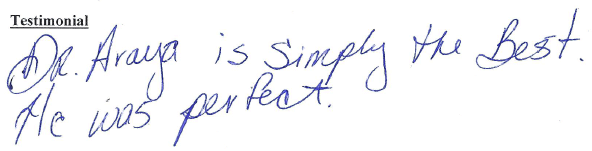 Testimonial
Dr. Araya is simply the Best.
He was perfect.